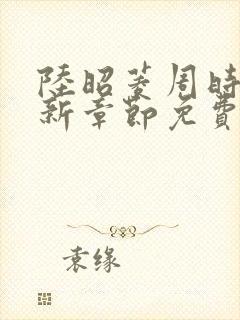 陸昭菱周時
新章節免費
袁缘